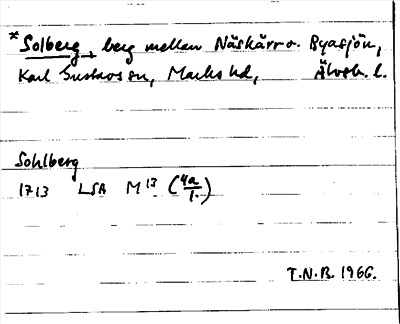 *Solberg, berg mellan Näskärr o. Byasjön,
Karl Gustavs sn, Marks hd, Älvsb. l.
Sohlberg
1713 LSA M 13 (4a/1.)
T.N.B. 1966.